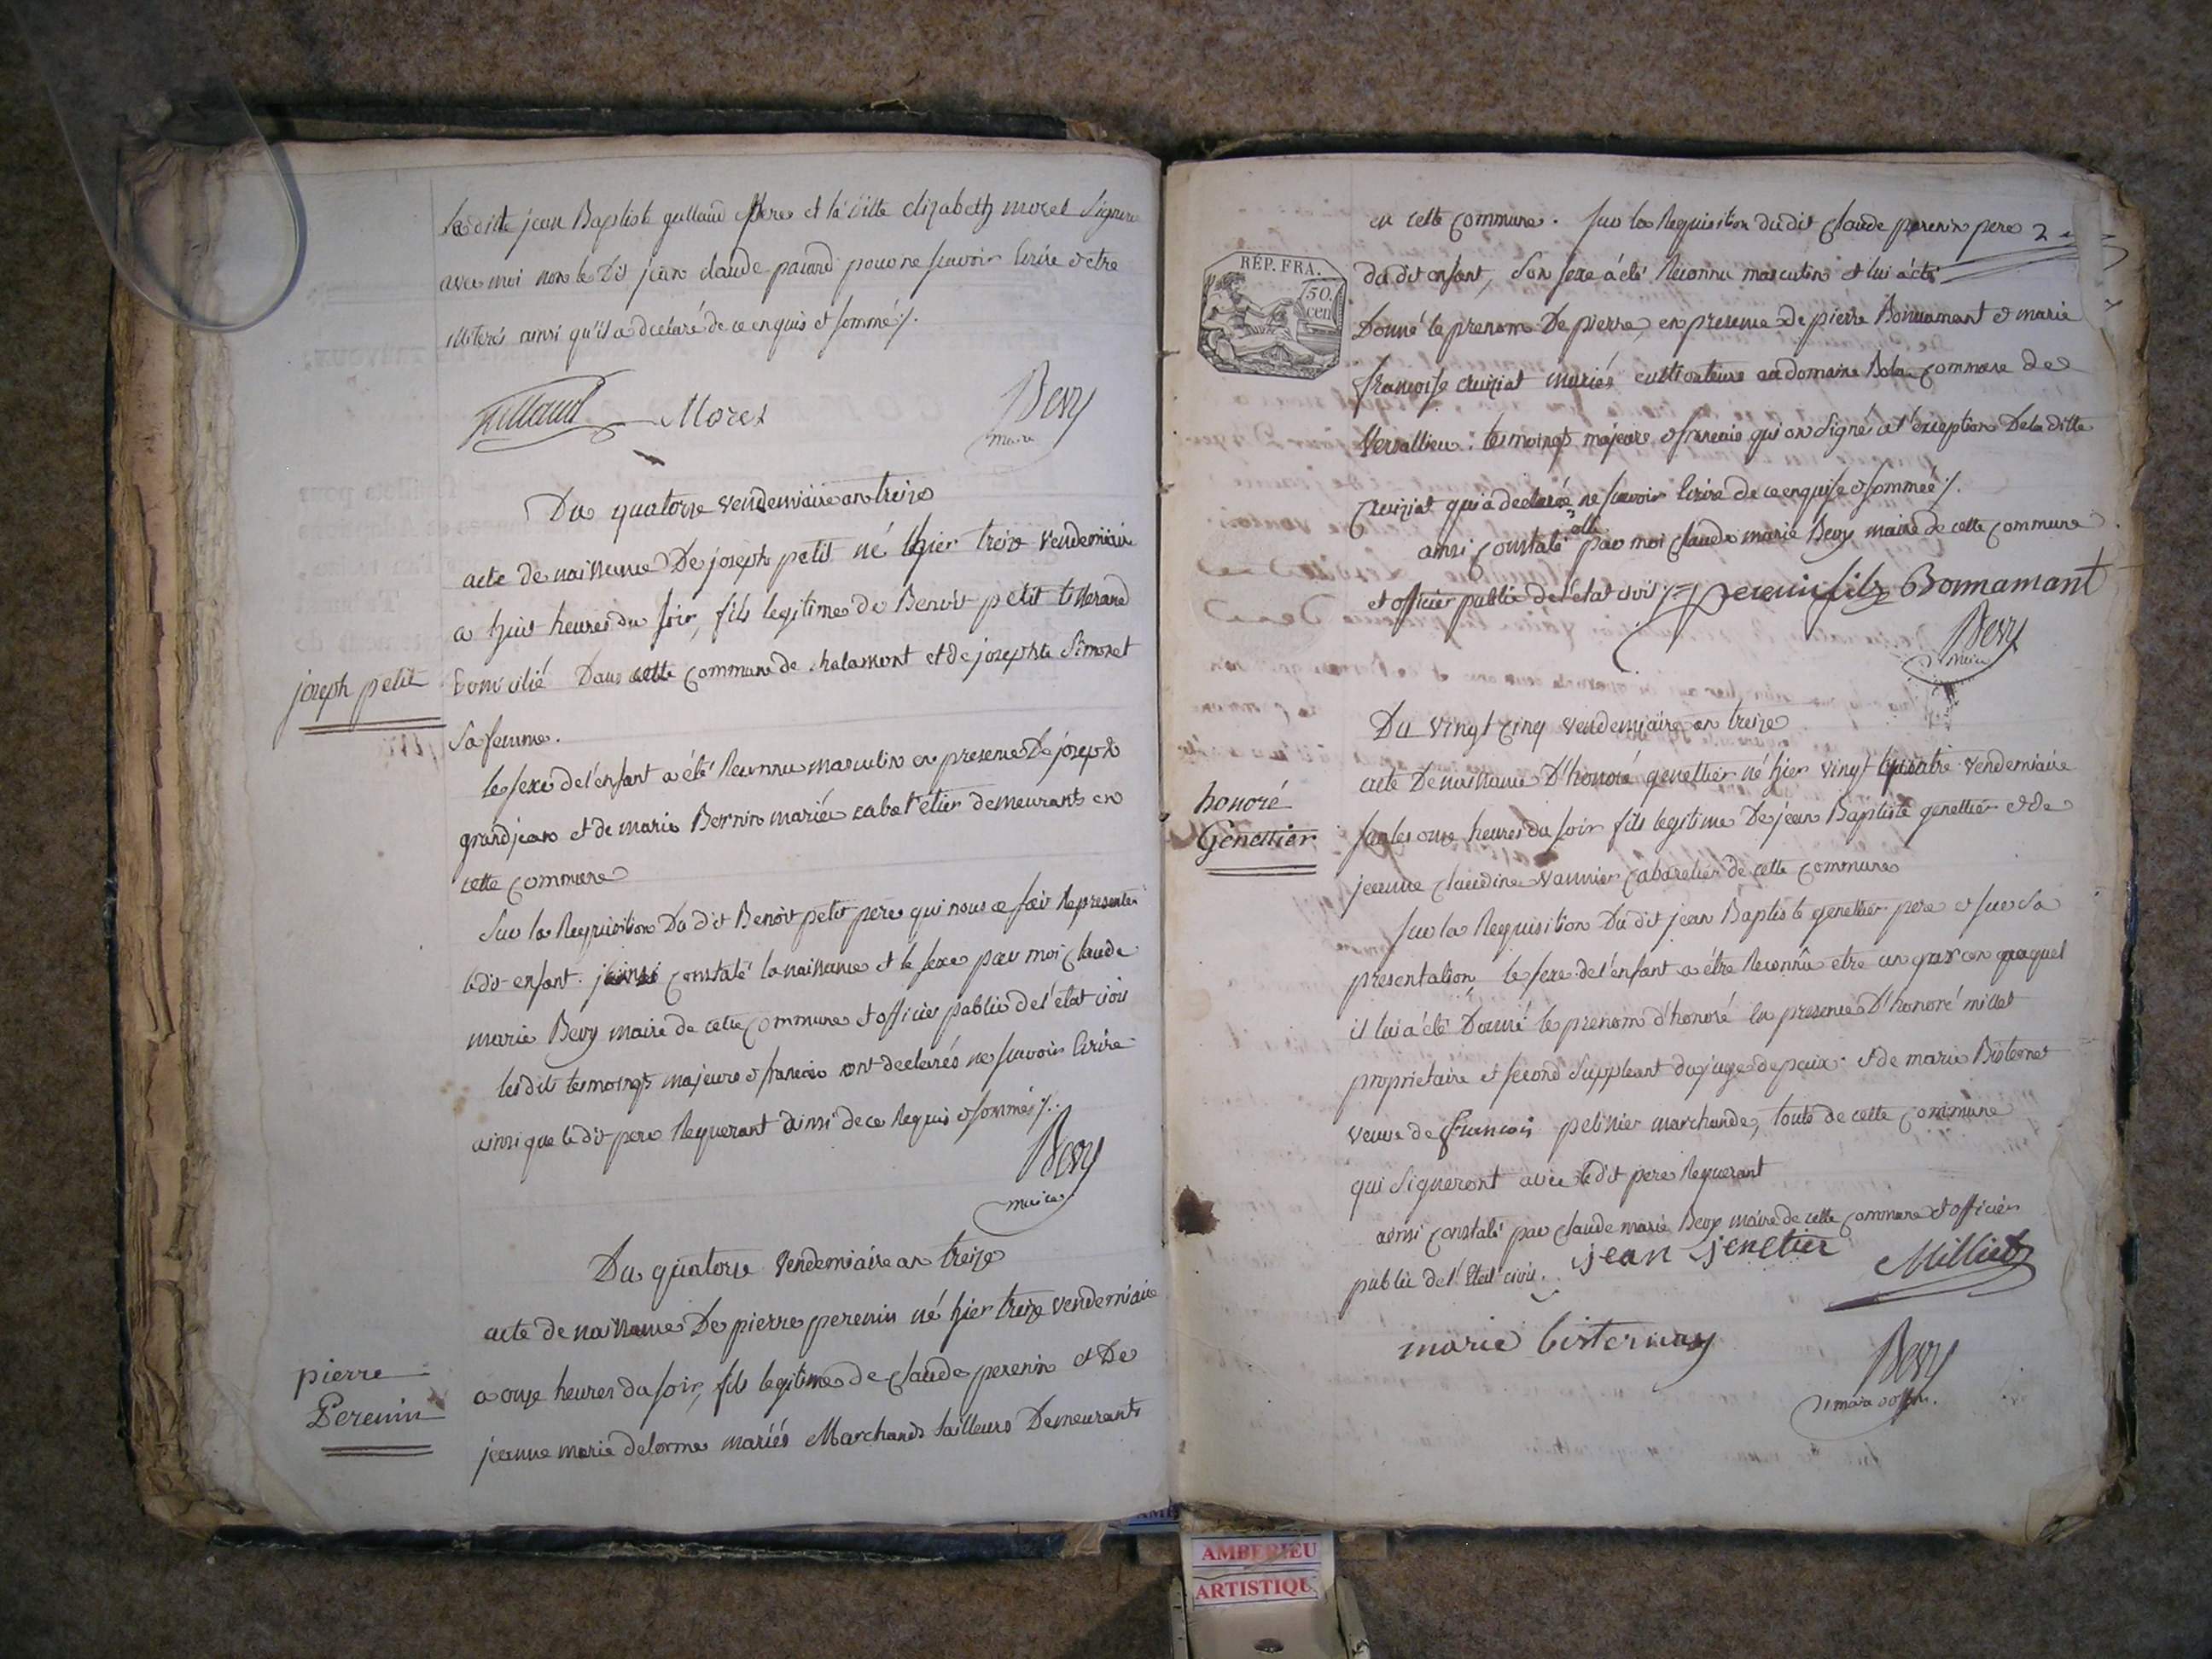 jean Baptiste guillaud pere et la ditte elizabeth morel signeront
avec moi non le dit jean claude pour ne scavoir Ecrire et etre
illiterés ainsi qu'il a declaré de ce enquis et sommé ./.
Morel
Bevy
maire
Du quatorze vendemiaire an treize
joseph petit
acte de naissance De joseph petit né hier treize vendemiaire
a huit heures du soir, fils legitime de Benoit petit tisserand
Domicilié Dans cette commune de chalamont et de josephte Simonet
sa femme.
le sexe de l'enfant a été Reconnu masculin en presence De joseph
grandjean et de marie Bernin mariés cabaretier demeurants en
cette commune
Sur la Requisition Du dit Benoit petit pere qui nous a fait Representer
ledit enfant. constaté la naissance et le sexe par moi claude
marie Bevy maire de cette commune et officier public de l'etat civil
les dits temoings majeurs et francois ont declarés ne scavoir Ecrire
ainsi que le dit pere Requerant de ce Requis et sommés ./.
Bevy
maire
Du quatorze vendemiaire an treize
pierre
Perenin
acte de naissance De pierre perenin né hier treize vendemiaire
a onze heures du soir, fils legitime de claude perenin et De
jeanne marie delorme mariés Marchands tailleurs Demeurants
en cette commune. sur la Requisition du dit claude perenin pere 2
RÉP. FRA.
50.
cen
du dit enfant, son sexe a été Reconnu masculin et lui a été
Donné le prenom De pierre, en presence de pierre Bonnamant et marie
francoise cruiziat mariés cultivateurs au domaine commune de
Versallieu. temoings majeurs et francais qui on signé a l'exception De la ditte
cruiziat qui a declarée ne scavoir Ecrire de ce enquise et sommée ./.
ainsi constaté par moi claude marie Bevy maire de cette commune
et officier public de l'etat civil ./. perenin fils Bonnamant
Bevy
maire
Du vingt cinq vendemiaire an treize
honoré
Genettier
acte De naissance D'honoré genettier né hier vingt quatre vendemiaire
sur les onze heures du soir fils legitime De jean Baptiste genettier et de
jeanne claudine vannier cabaretier de cette commune
sur la Requisition Du dit jean Baptiste genettier pere et sur sa
presentation, le sexe de l'enfant a étre Reconnû etre un garcon auquel
il lui a été Donné le prenom d'honoré En presence D'honoré millet
proprietaire et second suppleant du juge de paix et de marie Bisternet
veuve de francois pelissier marchande, touts de cette commune
qui signeront avec le dit pere Requerant
ainsi constaté par claude marie Bevy maire de cette commune et officier
public de l'Etat civil. jean jenetier
Milliet
marie bisternay
Bevy
maire
AMBERIEU
ARTISTIQU